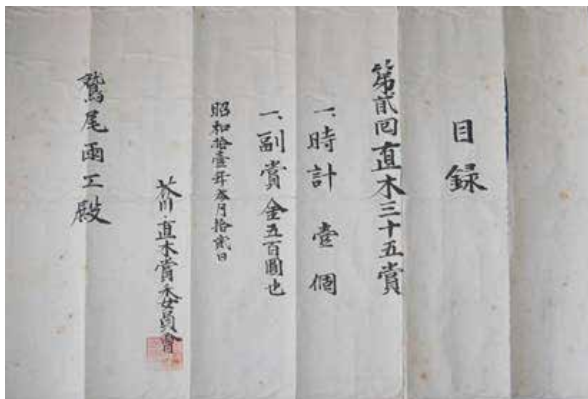 目録
第貳回直木三十五賞
一、時計壹個
一、副賞金五百圓也
昭和拾壹年参月拾貳日
芥川・直木賞委員會
鷲尾雨工殿